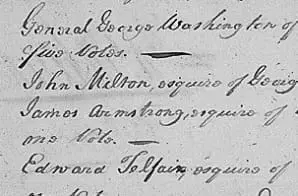 General George Washington of
five Votes.
John Milton, esquire of Georg
James Armstrong, esquire of
one Vote.
Edward Telfair, esquire of